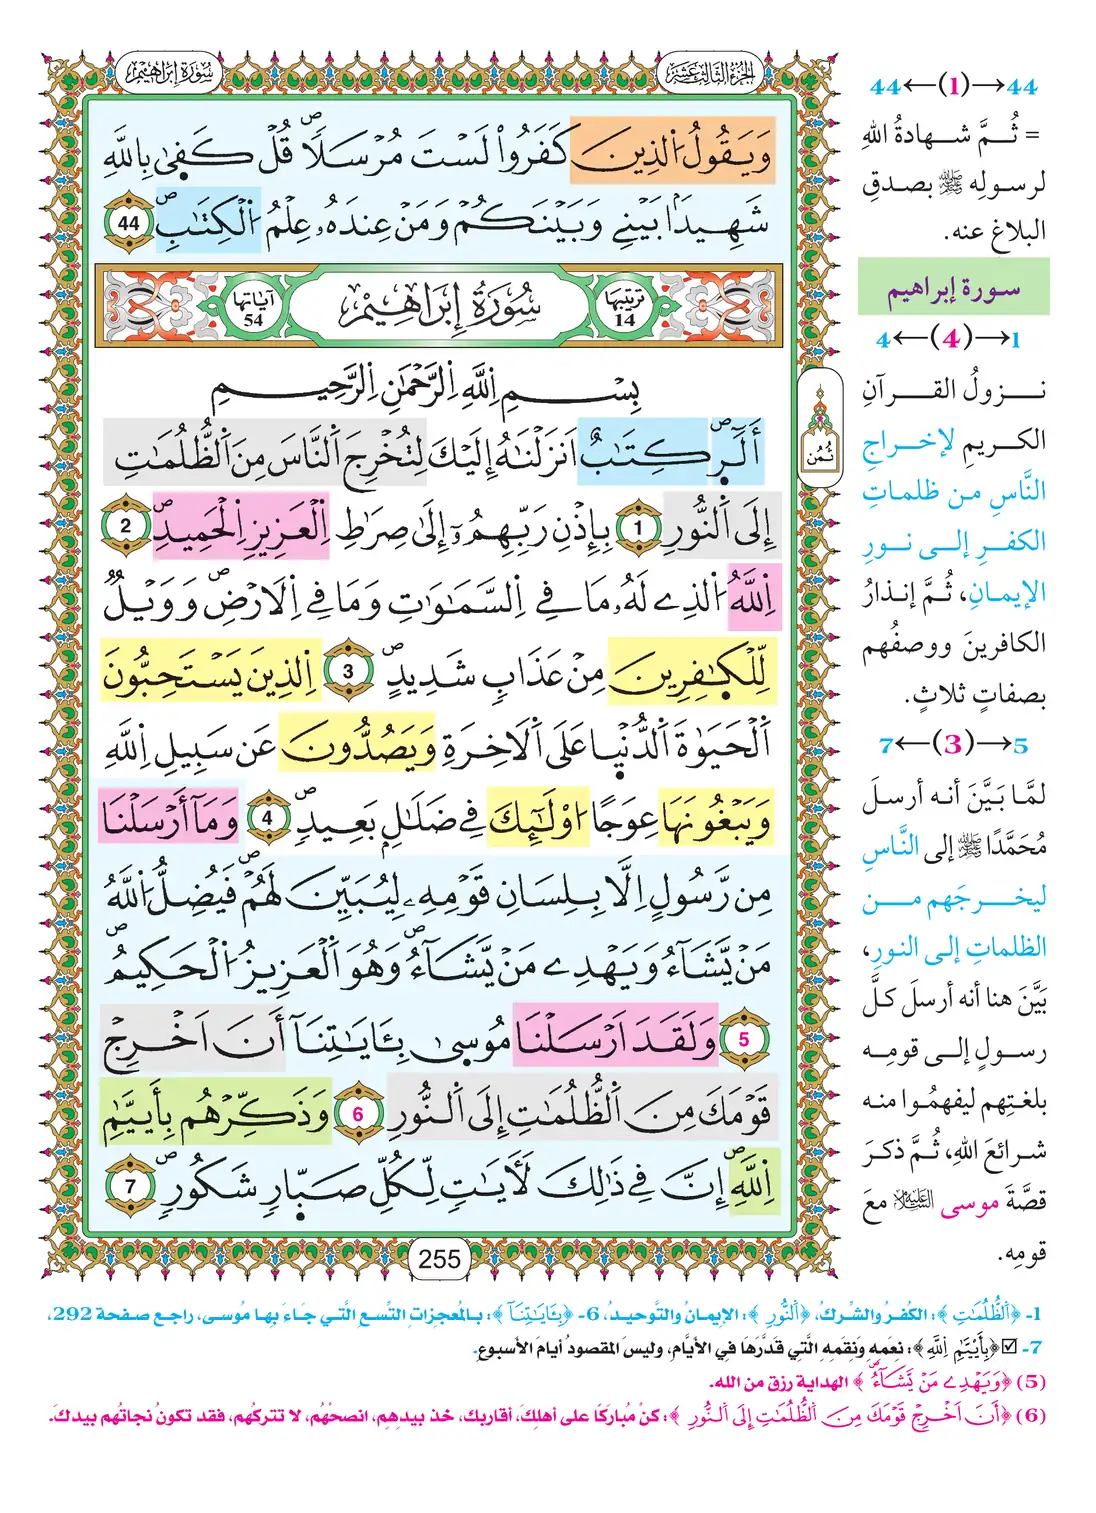 الجزء الثالث عشر
سورة إبراهيم
وَيَقُولُ اُ۬لذِينَ كَفَرُواْ لَسْتَ مُرْسَلاٗۖ قُلْ كَفٜىٰ بِاللَّهِ
شَهِيداَۢ بَيْنِے وَبَيْنَكُمْ وَمَنْ عِندَهُۥ عِلْمُ اُ۬لْكِتَٰبِۖ 44
ترتيبها 14
سُورَةُ إِبْرَاهِيمَ
آياتها 54
بِسْمِ اِ۬للَّهِ اِ۬لرَّحْمَٰنِ اِ۬لرَّحِيمِ
أَلَٓر۪ۖ كِتَٰبٌ اَنزَلْنَٰهُ إِلَيْكَ لِتُخْرِجَ اَ۬لنَّاسَ مِنَ اَ۬لظُّلُمَٰتِ
إِلَى اَ۬لنُّورِ 1 بِإِذْنِ رَبِّهِمُۥٓ إِلَىٰ صِرَٰطِ اِ۬لْعَزِيزِ اِ۬لْحَمِيدِۖ 2
اِ۬للَّهُ اُ۬لذِے لَهُۥ مَا فِے اِ۬لسَّمَٰوَٰتِ وَمَا فِے اِ۬لَارْضِۖ وَوَيْلٞ
لِّلْكٜ۪فِرِينَ مِنْ عَذَابٖ شَدِيدٍۖ 3 اِ۬لذِينَ يَسْتَحِبُّونَ
اَ۬لْحَيَوٰةَ اَ۬لدُّنْي۪ا عَلَى اَ۬لَاخِرَةِ وَيَصُدُّونَ عَن سَبِيلِ اِ۬للَّهِ
وَيَبْغُونَهَا عِوَجاً اوْلَٰٓئِكَ فِے ضَلَٰلِۢ بَعِيدٖۖ 4 وَمَآ أَرْسَلْنَا
مِن رَّسُولٍ اِلَّا بِلِسَانِ قَوْمِهِۦ لِيُبَيِّنَ لَهُمْۖ فَيُضِلُّ اُ۬للَّهُ
مَنْ يَّشَآءُ وَيَهْدِے مَنْ يَّشَآءُۖ وَهُوَ اَ۬لْعَزِيزُ اُ۬لْحَكِيمُۖ
5 وَلَقَدَ اَرْسَلْنَا مُوس۪ىٰ بِـَٔايَٰتِنَآ أَنَ اَخْرِجْ
قَوْمَكَ مِنَ اَ۬لظُّلُمَٰتِ إِلَى اَ۬لنُّورِ 6 وَذَكِّرْهُم بِأَيَّيٰمِ
اِ۬للَّهِۖ إِنَّ فِے ذَٰلِكَ لَأٓيَٰتٖ لِّكُلِّ صَبّ۪ارٖ شَكُورٖۖ 7
255
ثُمُن
44←(1)→44
= ثُمَّ شهادةُ اللهِ
لرسولِه ﷺ بصدقِ
البلاغِ عنه.
سورة إبراهيم
4←(4)→1
نزولُ القرآنِ
الكريمِ لإخراجِ
النَّاسِ من ظلماتِ
الكفرِ إلى نورِ
الإيمانِ، ثُمَّ إنذارُ
الكافرينَ ووصفُهم
بصفاتٍ ثلاثٍ.
7←(3)→5
لمَّا بَيَّنَ أنه أرسلَ
مُحَمَّدًا ﷺ إلى النَّاسِ
ليخرجَهم من
الظلماتِ إلى النورِ،
بَيَّنَ هنا أنه أرسلَ كلَّ
رسولٍ إلى قومِه
بلغتِهم ليفهمُوا منه
شرائعَ اللهِ، ثُمَّ ذكرَ
قصَّةَ موسى عليه السلام معَ
قومِه.
1- ﴿اَ۬لظُّلُمَٰتِ﴾: الكُفرُ والشِّركُ، ﴿اَ۬لنُّورِ﴾: الإيمانُ والتَّوحيدُ، 6- ﴿بِـَٔايَٰتِنَآ﴾: بالمُعجزاتِ التِّسعِ الَّتي جَاءَ بها مُوسى، راجع صفحة 292،
7- ☑ ﴿بِأَيَّيٰمِ اِ۬للَّهِ﴾: نعَمِهِ ونقَمِهِ الَّتي قَدَّرَهَا في الأيَّامِ، وليسَ المقصودُ أيامَ الأسبوعِ.
(5) ﴿وَيَهْدِے مَنْ يَّشَآءُۖ﴾ الهداية رزق من الله.
(6) ﴿أَنَ اَخْرِجْ قَوْمَكَ مِنَ اَ۬لظُّلُمَٰتِ إِلَى اَ۬لنُّورِ﴾: كنْ مُباركًا على أهلِكَ، أقاربِكَ، خذ بيدِهِم، انصحْهُم، لا تتركْهُم، فقد تكونُ نجاتُهم بيدكَ.